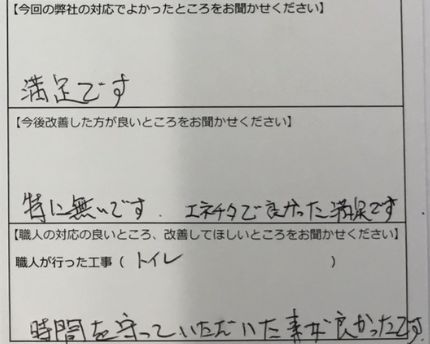 【今回の弊社の対応でよかったところをお聞かせください】
満足です
【今後改善した方が良いところをお聞かせください】
特に無いです. エネチタで良かった満足です
【職人の対応の良いところ、改善してほしいところをお聞かせください】
職人が行った工事（ トイレ ）
時間を守っていただいた事が良かったです